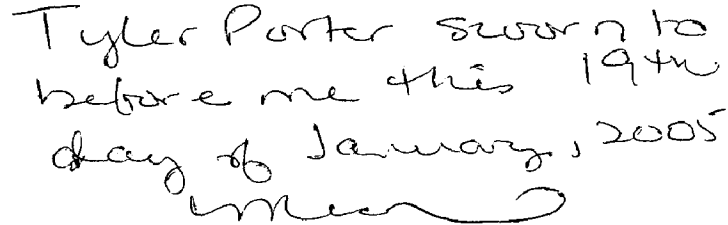 Tyler Porter sworn to
before me this 19th
day of January, 2005